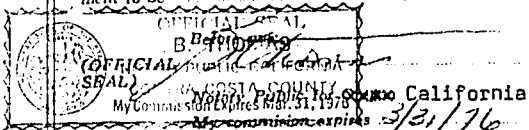 ment to be
OFFICIAL SEAL
B. THOMAS
Before me:
(OFFICIAL
SEAL)
PUBLIC CALIFORNIA
COSTA COUNTY
Notary Public California
My Commission Expires Mar. 31, 1976
My commission expires 3/31/76